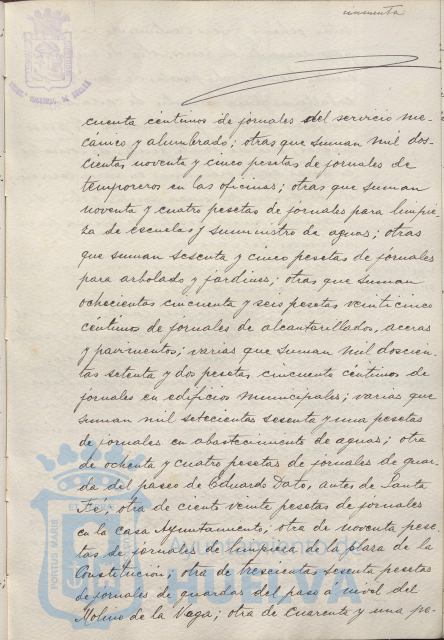 cuenta céntimos de jornales del servicio me-
cánico y alumbrado; otras que suman mil dos-
cientas noventa y cinco pesetas de jornales de
temporeros en las oficinas; otras que suman
noventa y cuatro pesetas de jornales para limpie-
za de escuelas y suministro de aguas; otras
que suman sesenta y cinco pesetas de jornales
para arbolado y jardines; otras que suman
ochocientas cincuenta y seis pesetas veinticinco
céntimos de jornales de alcantarillados, aceras
y pavimentos; varias que suman mil doscien-
tas setenta y dos pesetas cincuenta céntimos de
jornales en edificios municipales; varias que
suman mil setecientas sesenta y una pesetas
de jornales en abastecimiento de aguas; otra
de ochenta y cuatro pesetas de jornales de guar-
da del paseo de Eduardo Dato, antes de Santa
Fé; otra de ciento veinte pesetas de jornales
en la casa Ayuntamiento, otra de noventa pese-
tas de jornales de limpieza de la plaza de la
Constitución; otra de trescientas sesenta pesetas
de jornales de guardas del paso a nivel del
Molino de la Vega; otra de cuarenta y una pe-
Ayuntamiento de
HUELVA
PORTUS MARIS